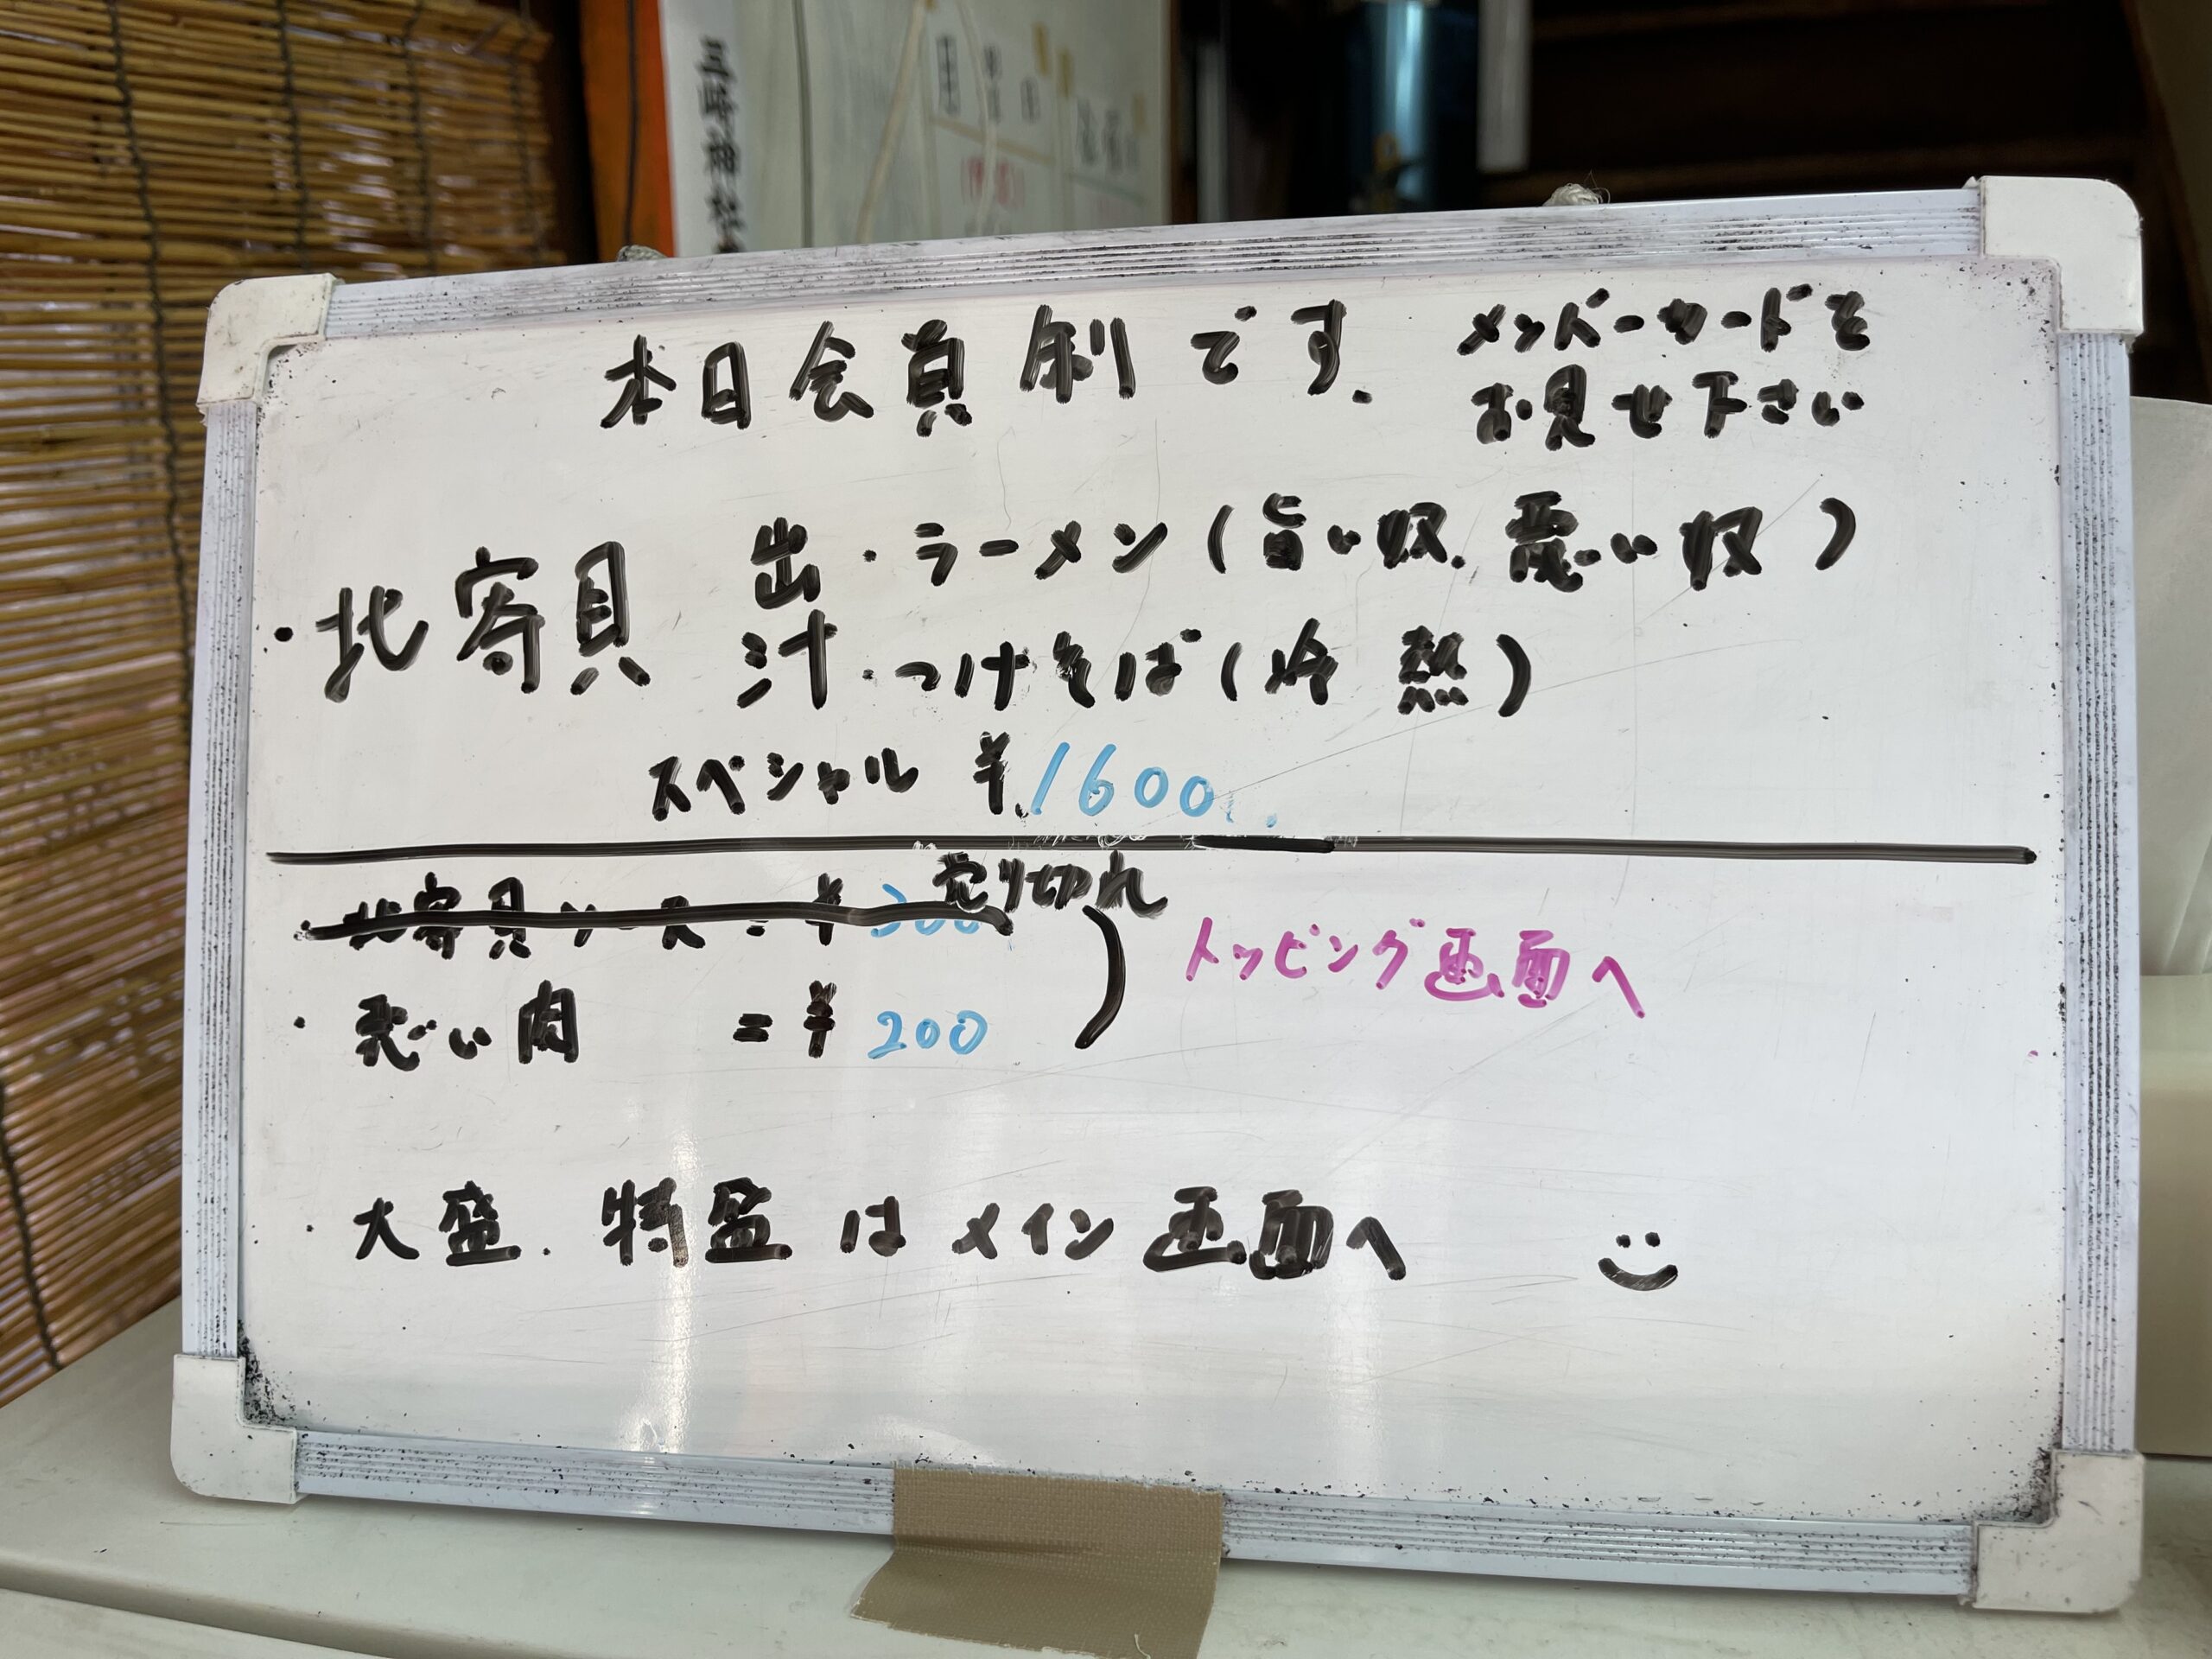 三崎神社
本日会員制です.
メンバーカードを
お見せ下さい
・北寄貝 出汁
・ラーメン(旨い奴.悪い奴)
・つけそば(冷 熱)
スペシャル ¥1600.
・北寄貝ソース=¥300
売り切れ
・悪い肉 =¥200
) トッピング画面へ
・大盛.特盛はメイン画面へ